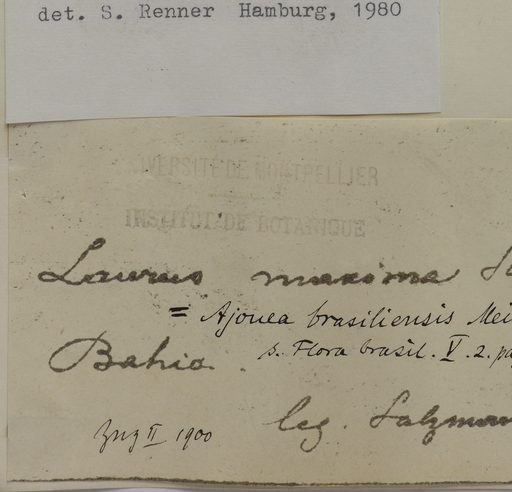 det. S. Renner Hamburg, 1980
UNIVERSITÉ DE MONTPELLIER
INSTITUT DE BOTANIQUE
Laurus maxima
= Ajouea brasiliensis Mei
Bahia. s. Flora brasil. V. 2. pa
II 1900 leg. Salzman